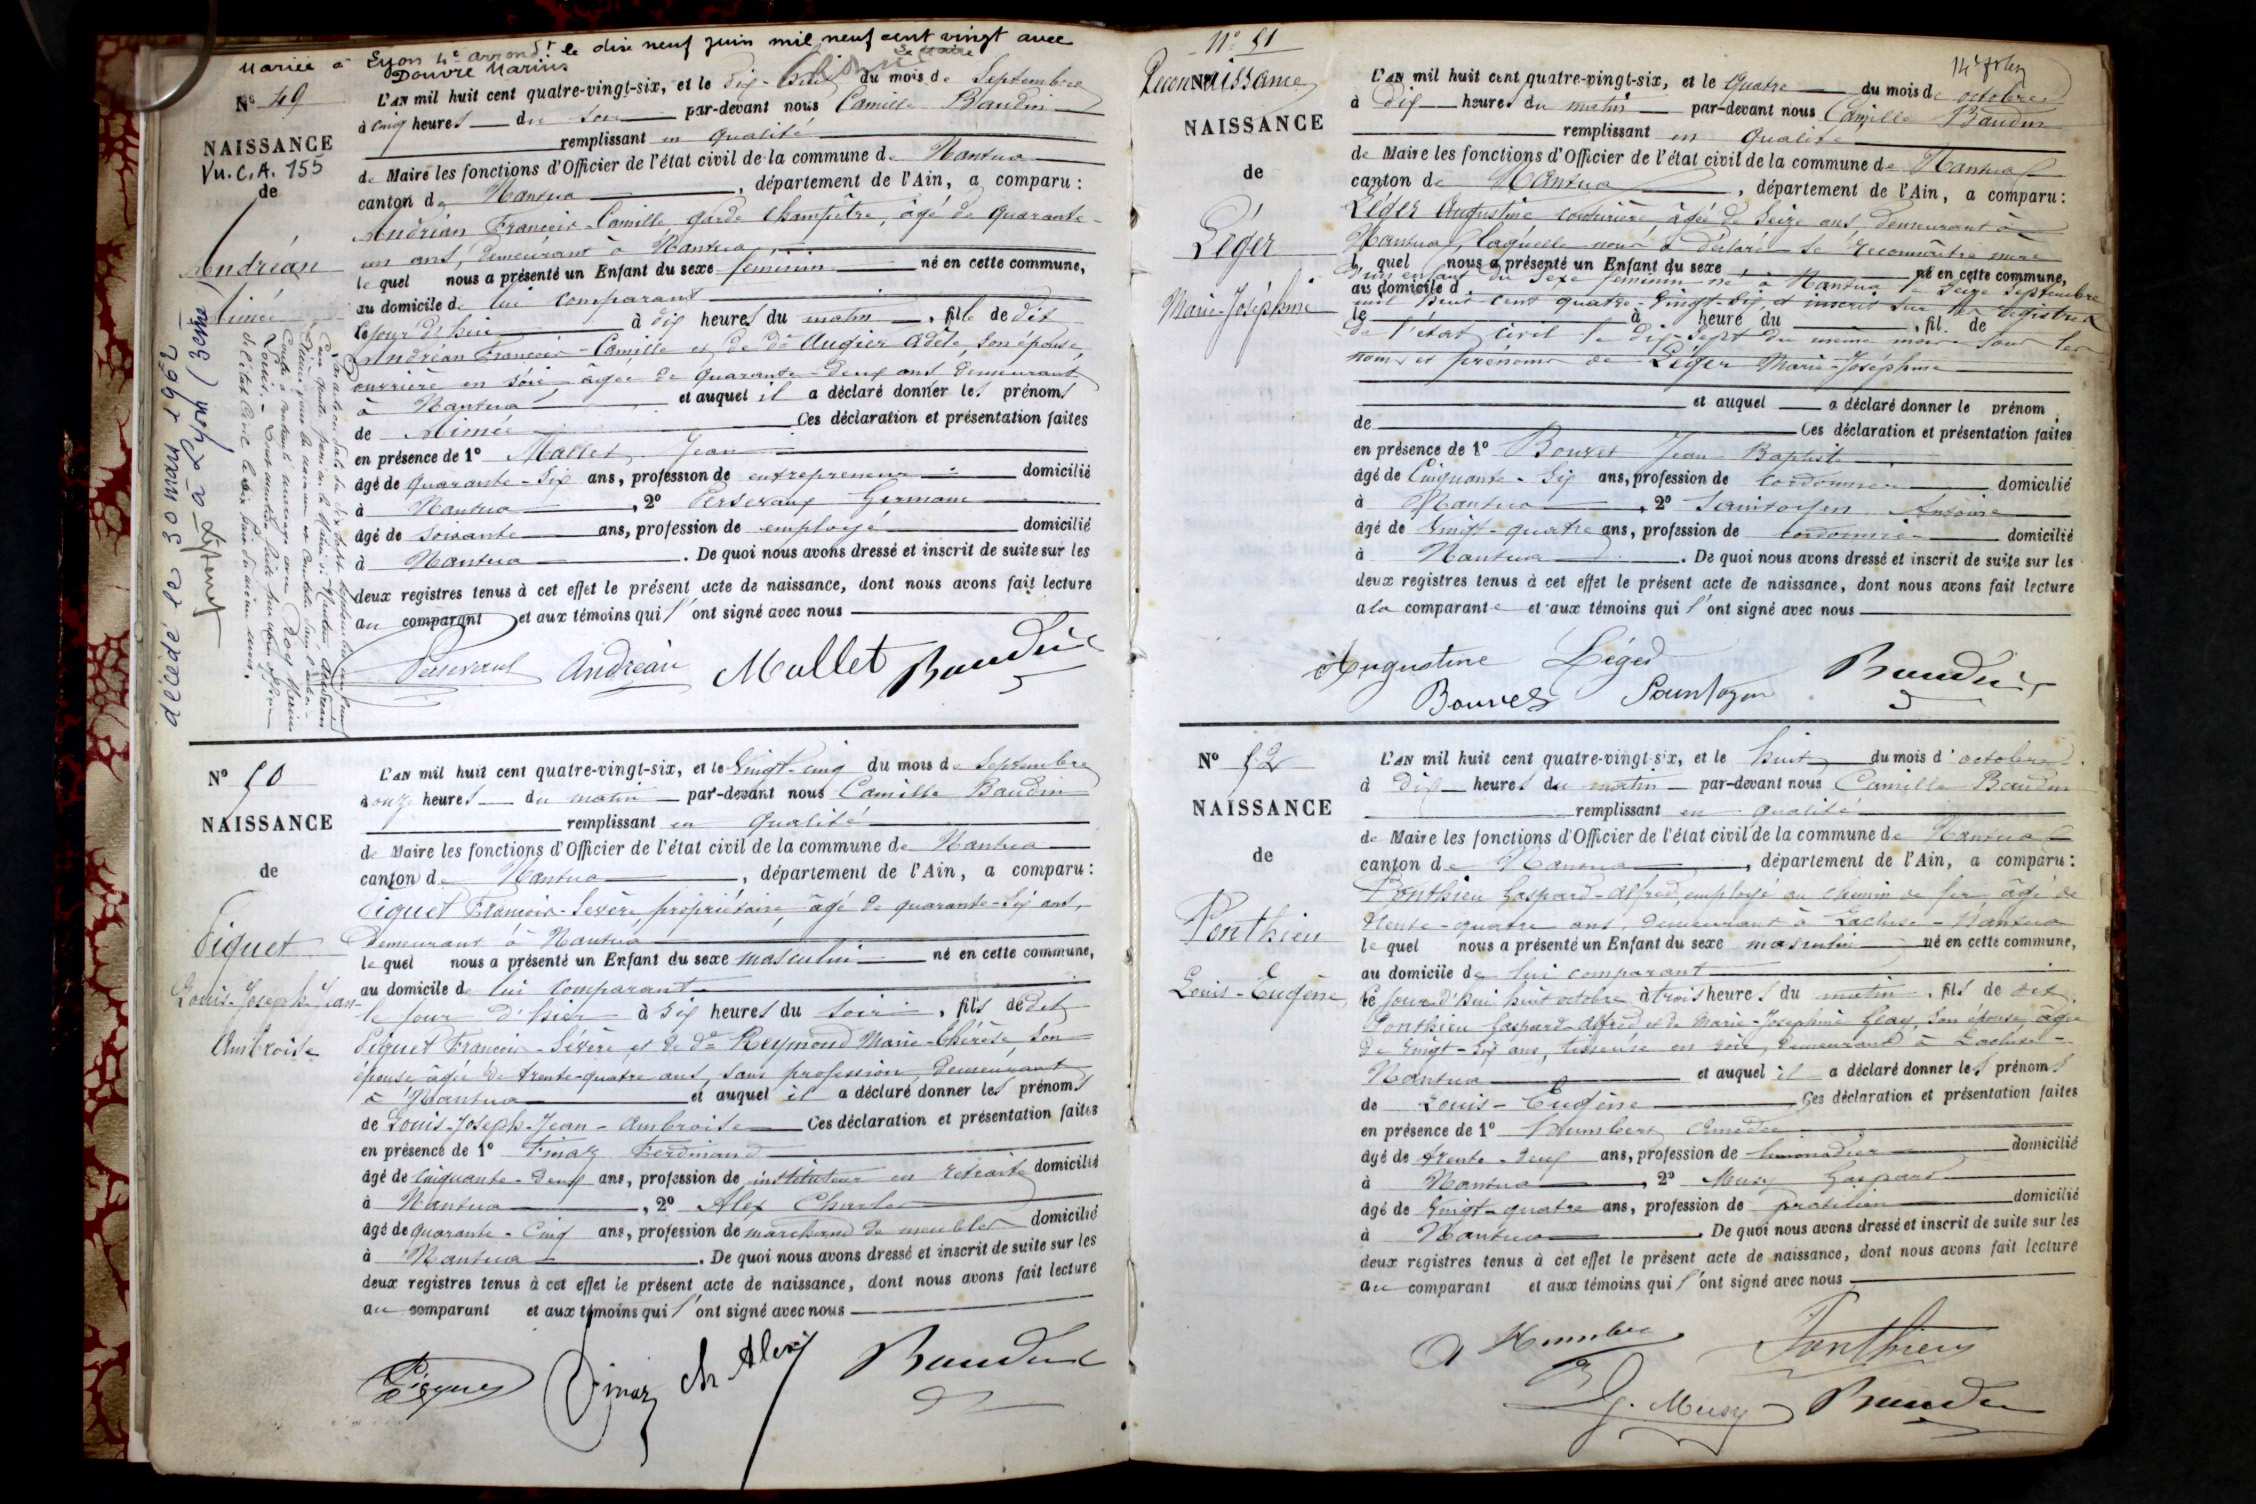 Mariée à Lyon 4e arrondt le dix neuf juin mil neuf cent vingt avec
Douvre Marius
N° 49
NAISSANCE
Vu. C. A. 155
de
Andréan
Aimée
décédé le 30 mars 1962
à Lyon (3eme)
L'AN mil huit cent quatre-vingt-six, et le dix-huit du mois de Septembre
à cinq heures du soir par-devant nous Camille Baudin
remplissant en qualité
de Maire les fonctions d'Officier de l'état civil de la commune de Nantua
canton de Nantua, département de l'Ain, a comparu:
Andréan François-Camille, garde champêtre, âgé de quarante-
un ans, demeurant à Nantua,
le quel nous a présenté un Enfant du sexe féminin né en cette commune,
au domicile de lui comparant
le jour d'hui à dix heures du matin, fille de dit
Andréan François-Camille et de de Augier Adèle, son épouse,
ouvrière en soie, âgée de quarante-deux ans, demeurant
à Nantua et auquel il a déclaré donner les prénoms
de Aimée Ces déclaration et présentation faites
en présence de 1° Mallet Jean
âgé de quarante-six ans, profession de entrepreneur domicilié
à Nantua, 2° Germain
âgé de soixante ans, profession de employé domicilié
à Nantua. De quoi nous avons dressé et inscrit de suite sur les
deux registres tenus à cet effet le présent acte de naissance, dont nous avons fait lecture
au comparant et aux témoins qui l'ont signé avec nous
Andréan Mallet Baudin
N° 50
NAISSANCE
de
Piquet
Louis-Joseph-Jean-
Ambroise
L'AN mil huit cent quatre-vingt-six, et le vingt-cinq du mois de Septembre
à onze heures du matin par-devant nous Camille Baudin
remplissant en qualité
de Maire les fonctions d'Officier de l'état civil de la commune de Nantua
canton de Nantua, département de l'Ain, a comparu:
Piquet François-Sévère, propriétaire, âgé de quarante-six ans,
demeurant à Nantua
le quel nous a présenté un Enfant du sexe masculin né en cette commune,
au domicile de lui comparant
le jour d'hier à six heures du soir, fils de dit
Piquet François-Sévère et de de Reymond Marie-Thérèse, son
épouse âgée de trente-quatre ans, sans profession, demeurant
à Nantua et auquel il a déclaré donner les prénoms
de Louis-Joseph-Jean-Ambroise Ces déclaration et présentation faites
en présence de 1° Finaz Ferdinand
âgé de cinquante-deux ans, profession de instituteur en retraite domicilié
à Nantua, 2° Alex Charles
âgé de quarante-cinq ans, profession de marchand de meubles domicilié
à Nantua. De quoi nous avons dressé et inscrit de suite sur les
deux registres tenus à cet effet le présent acte de naissance, dont nous avons fait lecture
au comparant et aux témoins qui l'ont signé avec nous
Piquet Finaz Ch Alex Baudin
N° 51
Reconnaissance
NAISSANCE
de
Léger
Marie-Joséphine
L'AN mil huit cent quatre-vingt-six, et le quatre du mois de octobre
à dix heures du matin par-devant nous Camille Baudin
remplissant en qualité
de Maire les fonctions d'Officier de l'état civil de la commune de Nantua
canton de Nantua, département de l'Ain, a comparu:
Léger Augustine couturière, âgée de seize ans demeurant à
Nantua, laquelle nous a déclaré se reconnaître mère
l quel nous a présenté un Enfant du sexe né en cette commune,
d'un enfant du sexe féminin né à Nantua le seize septembre
au domicile d
mil huit cent quatre-vingt-six et inscrit sur les registres
le à heure du, fil de
de l'état civil le dix sept du même mois sous les
noms et prénoms de Léger Marie-Joséphine
et auquel a déclaré donner le prénom
de Ces déclaration et présentation faites
en présence de 1° Bouvet Jean Baptist
âgé de cinquante-six ans, profession de cordonnier domicilié
à Nantua, 2° Antoine
âgé de vingt-quatre ans, profession de cordonnier domicilié
à Nantua. De quoi nous avons dressé et inscrit de suite sur les
deux registres tenus à cet effet le présent acte de naissance, dont nous avons fait lecture
a la comparante et aux témoins qui l'ont signé avec nous
Augustine Léger Baudin
Bouvet
N° 52
NAISSANCE
de
Ponthieu
Louis-Eugène
L'AN mil huit cent quatre-vingt-six, et le huit du mois d'octobre
à dix heures du matin par-devant nous Camille Baudin
remplissant en qualité
de Maire les fonctions d'Officier de l'état civil de la commune de Nantua
canton de Nantua, département de l'Ain, a comparu:
Ponthieu Gaspard-Alfred, employé au chemin de fer, âgé de
trente-quatre ans, demeurant à Lacluse-Nantua
le quel nous a présenté un Enfant du sexe masculin né en cette commune,
au domicile de lui comparant
le jour d'hui huit octobre à trois heures du matin, fils de dit
Ponthieu Gaspard-Alfred et de Marie-Joséphine Geay, son épouse, âgée
de vingt-six ans, tisseuse en soie, demeurant à Lacluse-
Nantua et auquel il a déclaré donner les prénoms
de Louis-Eugène Ces déclaration et présentation faites
en présence de 1° Humbert Amédée
âgé de trente-deux ans, profession de limonadier domicilié
à Nantua, 2° Musy Gaspard
âgé de vingt-quatre ans, profession de praticien domicilié
à Nantua. De quoi nous avons dressé et inscrit de suite sur les
deux registres tenus à cet effet le présent acte de naissance, dont nous avons fait lecture
au comparant et aux témoins qui l'ont signé avec nous
A Humbert Ponthieu
G. Musy Baudin